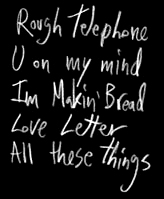 Rough Telephone
U on my mind
I'm Makin' Bread
Love Letter
All those things